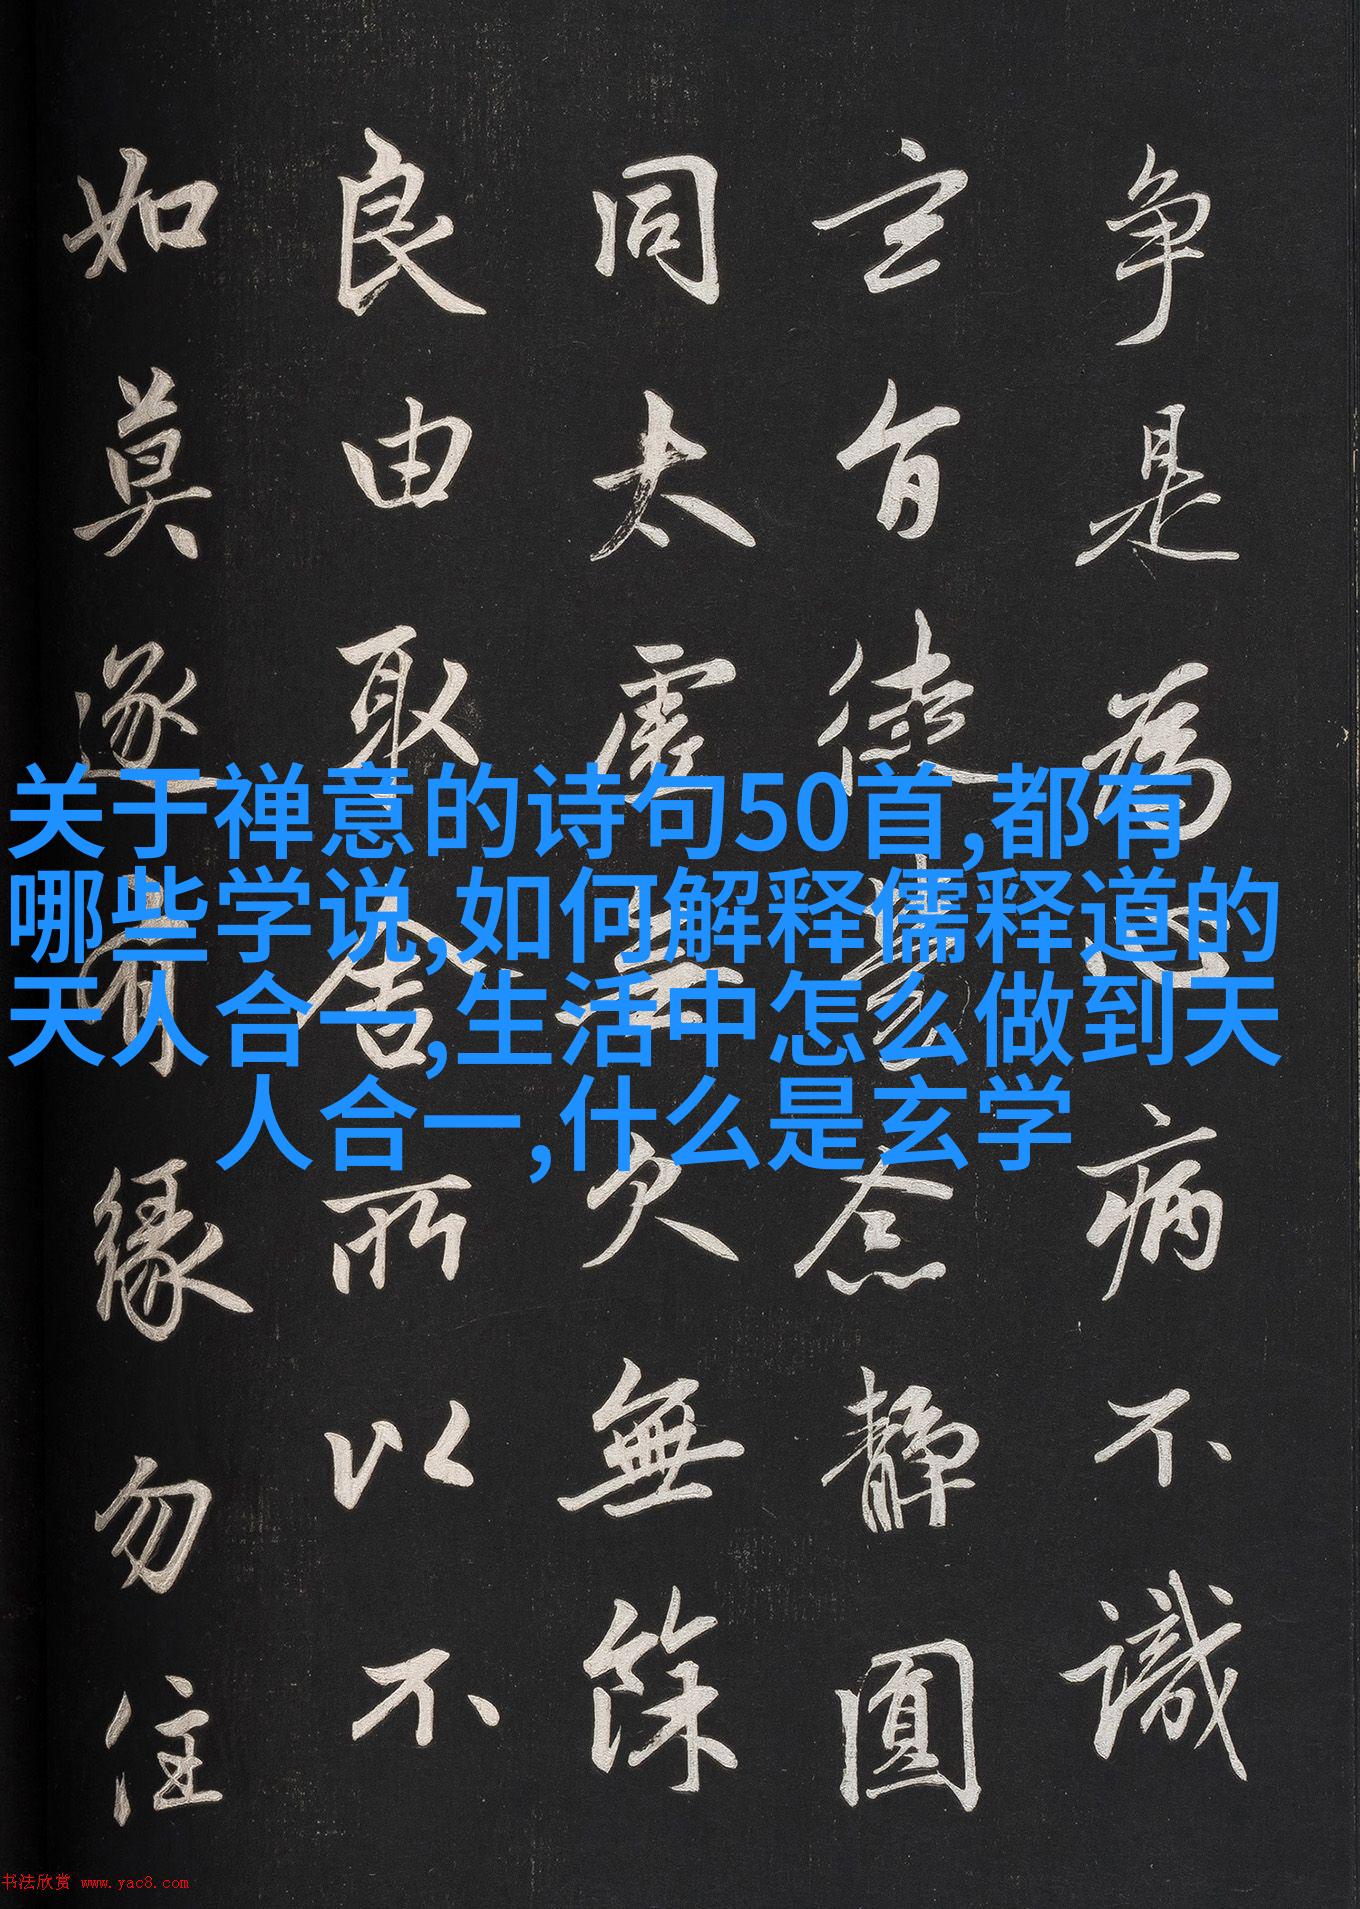 争是為心病不識
玄旨徒勞念靜圓
同太虛無欠無餘
良由取舍所以不
如莫逐有緣勿住
关于禅意的诗句50首,都有
哪些学说,如何解释儒释道的
天人合一,生活中怎么做到天
人合一,什么是玄学
书法欣赏 www.yac8.com